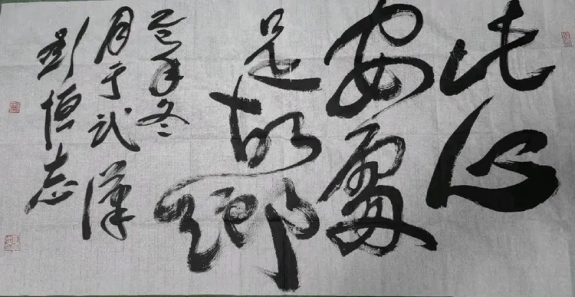 此心
安處
是故鄉
己亥冬
月于武漢
彭恒志